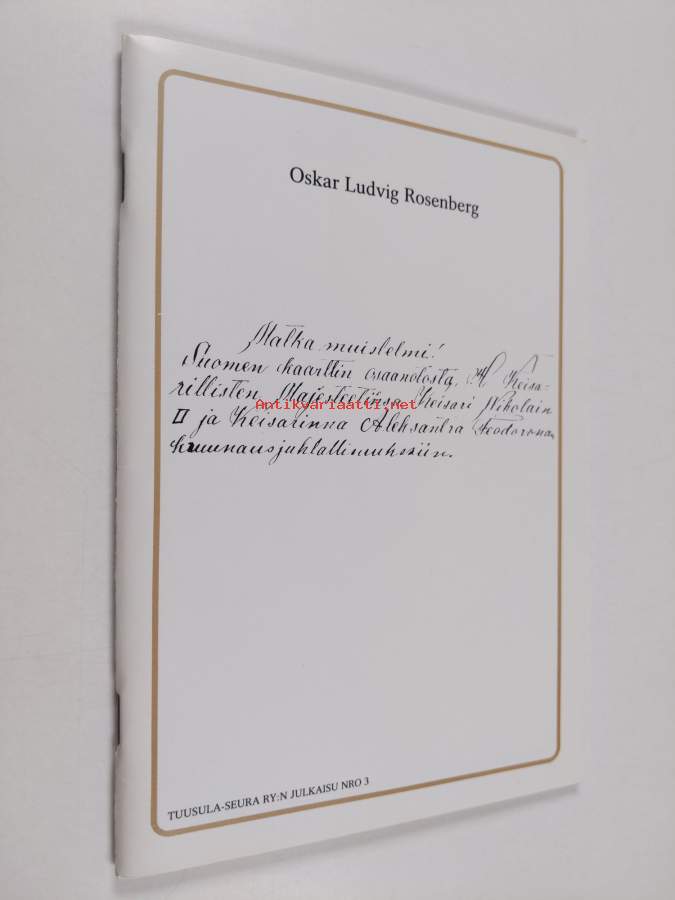 Oskar Ludvig Rosenberg
Matka muistelmi!
Suomen kaarttin osaanotosta, H Keisa-
rillisten Majesteetiensa Keisari Nikolain
II ja Keisarinna Aleksandra Feodoronan
kruunausjuhlattimuhsiin.
Antikvariaatti.net
TUUSULA-SEURA RY:N JULKAISU NRO 3